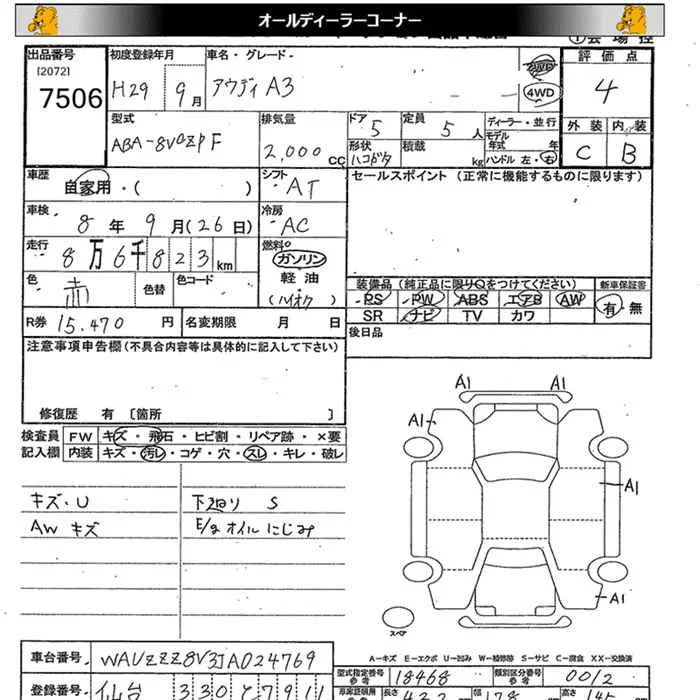 オールディーラーコーナー
出品番号
[2072]
7506
初度登録年月
H29 9月
車名・グレード
アウディ A3
4WD
評価点
4
外装 内装
C B
型式
ABA-8VCZPF
排気量
2,000 cc
ドア 5
定員 5 人
形状 ハコボタ
積載 kg
ディーラー・並行
モデル年式 年
ハンドル 左・右
車歴
自家用・( )
シフト
AT
セールスポイント (正常に機能するものに限ります)
車検
8年 9月(26日)
冷房
AC
走行
8万6千823km
燃料
ガソリン
軽油
(ハイオク)
色
赤
色替
色コード
装備品 (純正品に限りOをつけてください)
新車保証書
PS PW ABS エアB AW
有・無
SR ナビ TV カワ
R券 15,470 円
名変期限 月 日
後日品
注意事項申告欄(不具合内容等は具体的に記入して下さい)
修復歴 有 [箇所 ]
検査員記入欄
FW キズ・飛石・ヒビ割・リペア跡・×要
内装 キズ・汚レ・コゲ・穴・スレ・キレ・破レ
キズ・U
AW キズ
下廻り S
E/g オイルにじみ
A1 A1
A1
A1
A1
スペア
A-キズ E-エクボ U-凹み W-補修跡 S-サビ C-腐食 XX-交換済
車台番号
WAUZZZ8V3JA024769
型式指定番号 参考
18468
類別区分番号 参考
0012
登録番号
仙台 330
長さ
幅
178
高さ
145